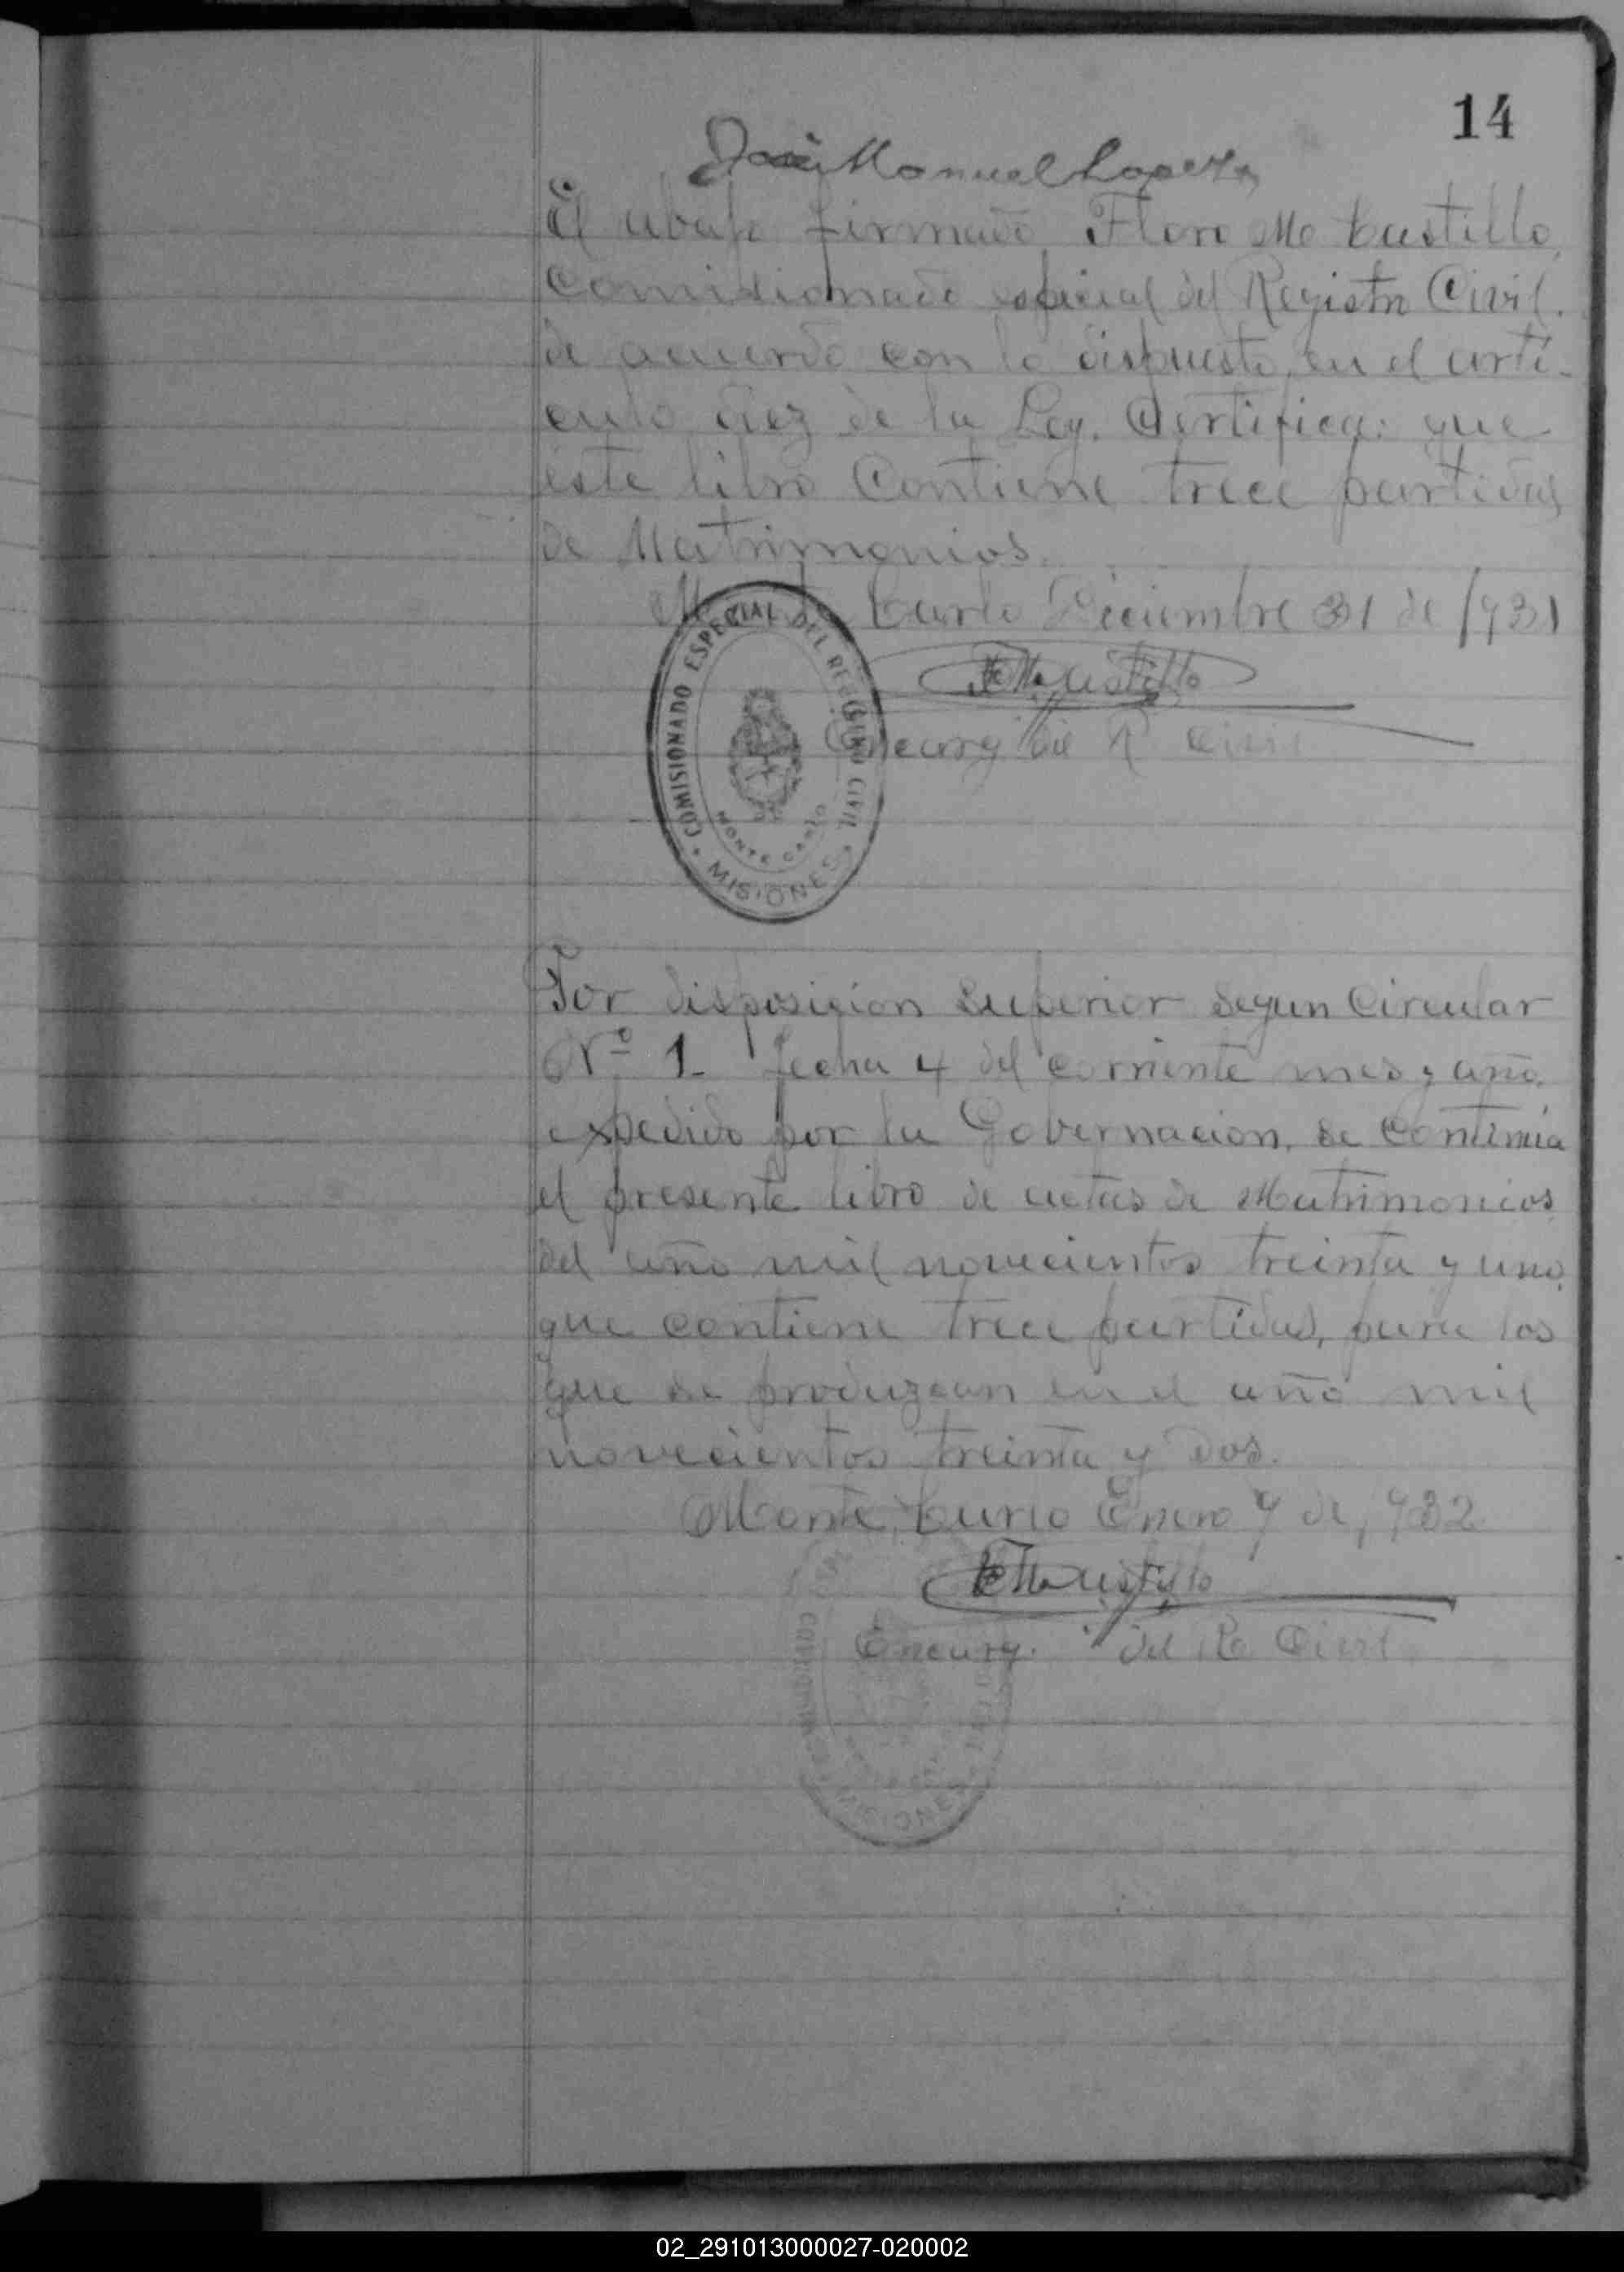 14
José Manuel Lopez
El abajo firmado, Floro Me Castillo,
Comisionado especial del Registro Civil.
de acuerdo con lo dispuesto, en el arti-
culo diez de la Ley. Certifica: que
este libro Contiene trece partidas
de Matrimonios.
Monte Carlo Diciembre 31 de 1931
COMISIONADO ESPECIAL DEL REGISTRO CIVIL
MONTE CARLO
MISIONES
F Me Castillo
Encarg del R Civil
Por disposicion Superior segun Circular
Nº 1 - fecha 4 del corriente mes y año.
expedido por la Gobernacion, se continúa
el presente libro de actas de Matrimonios
del año mil novecientos treinta y uno,
que contiene trece partidas, para los
que se produzcan en el año mil
novecientos treinta y dos.
Monte Carlo Enero 7 de 1932
F Me Castillo
Encarg. del R. Civil
MISIONES
02_291013000027-020002